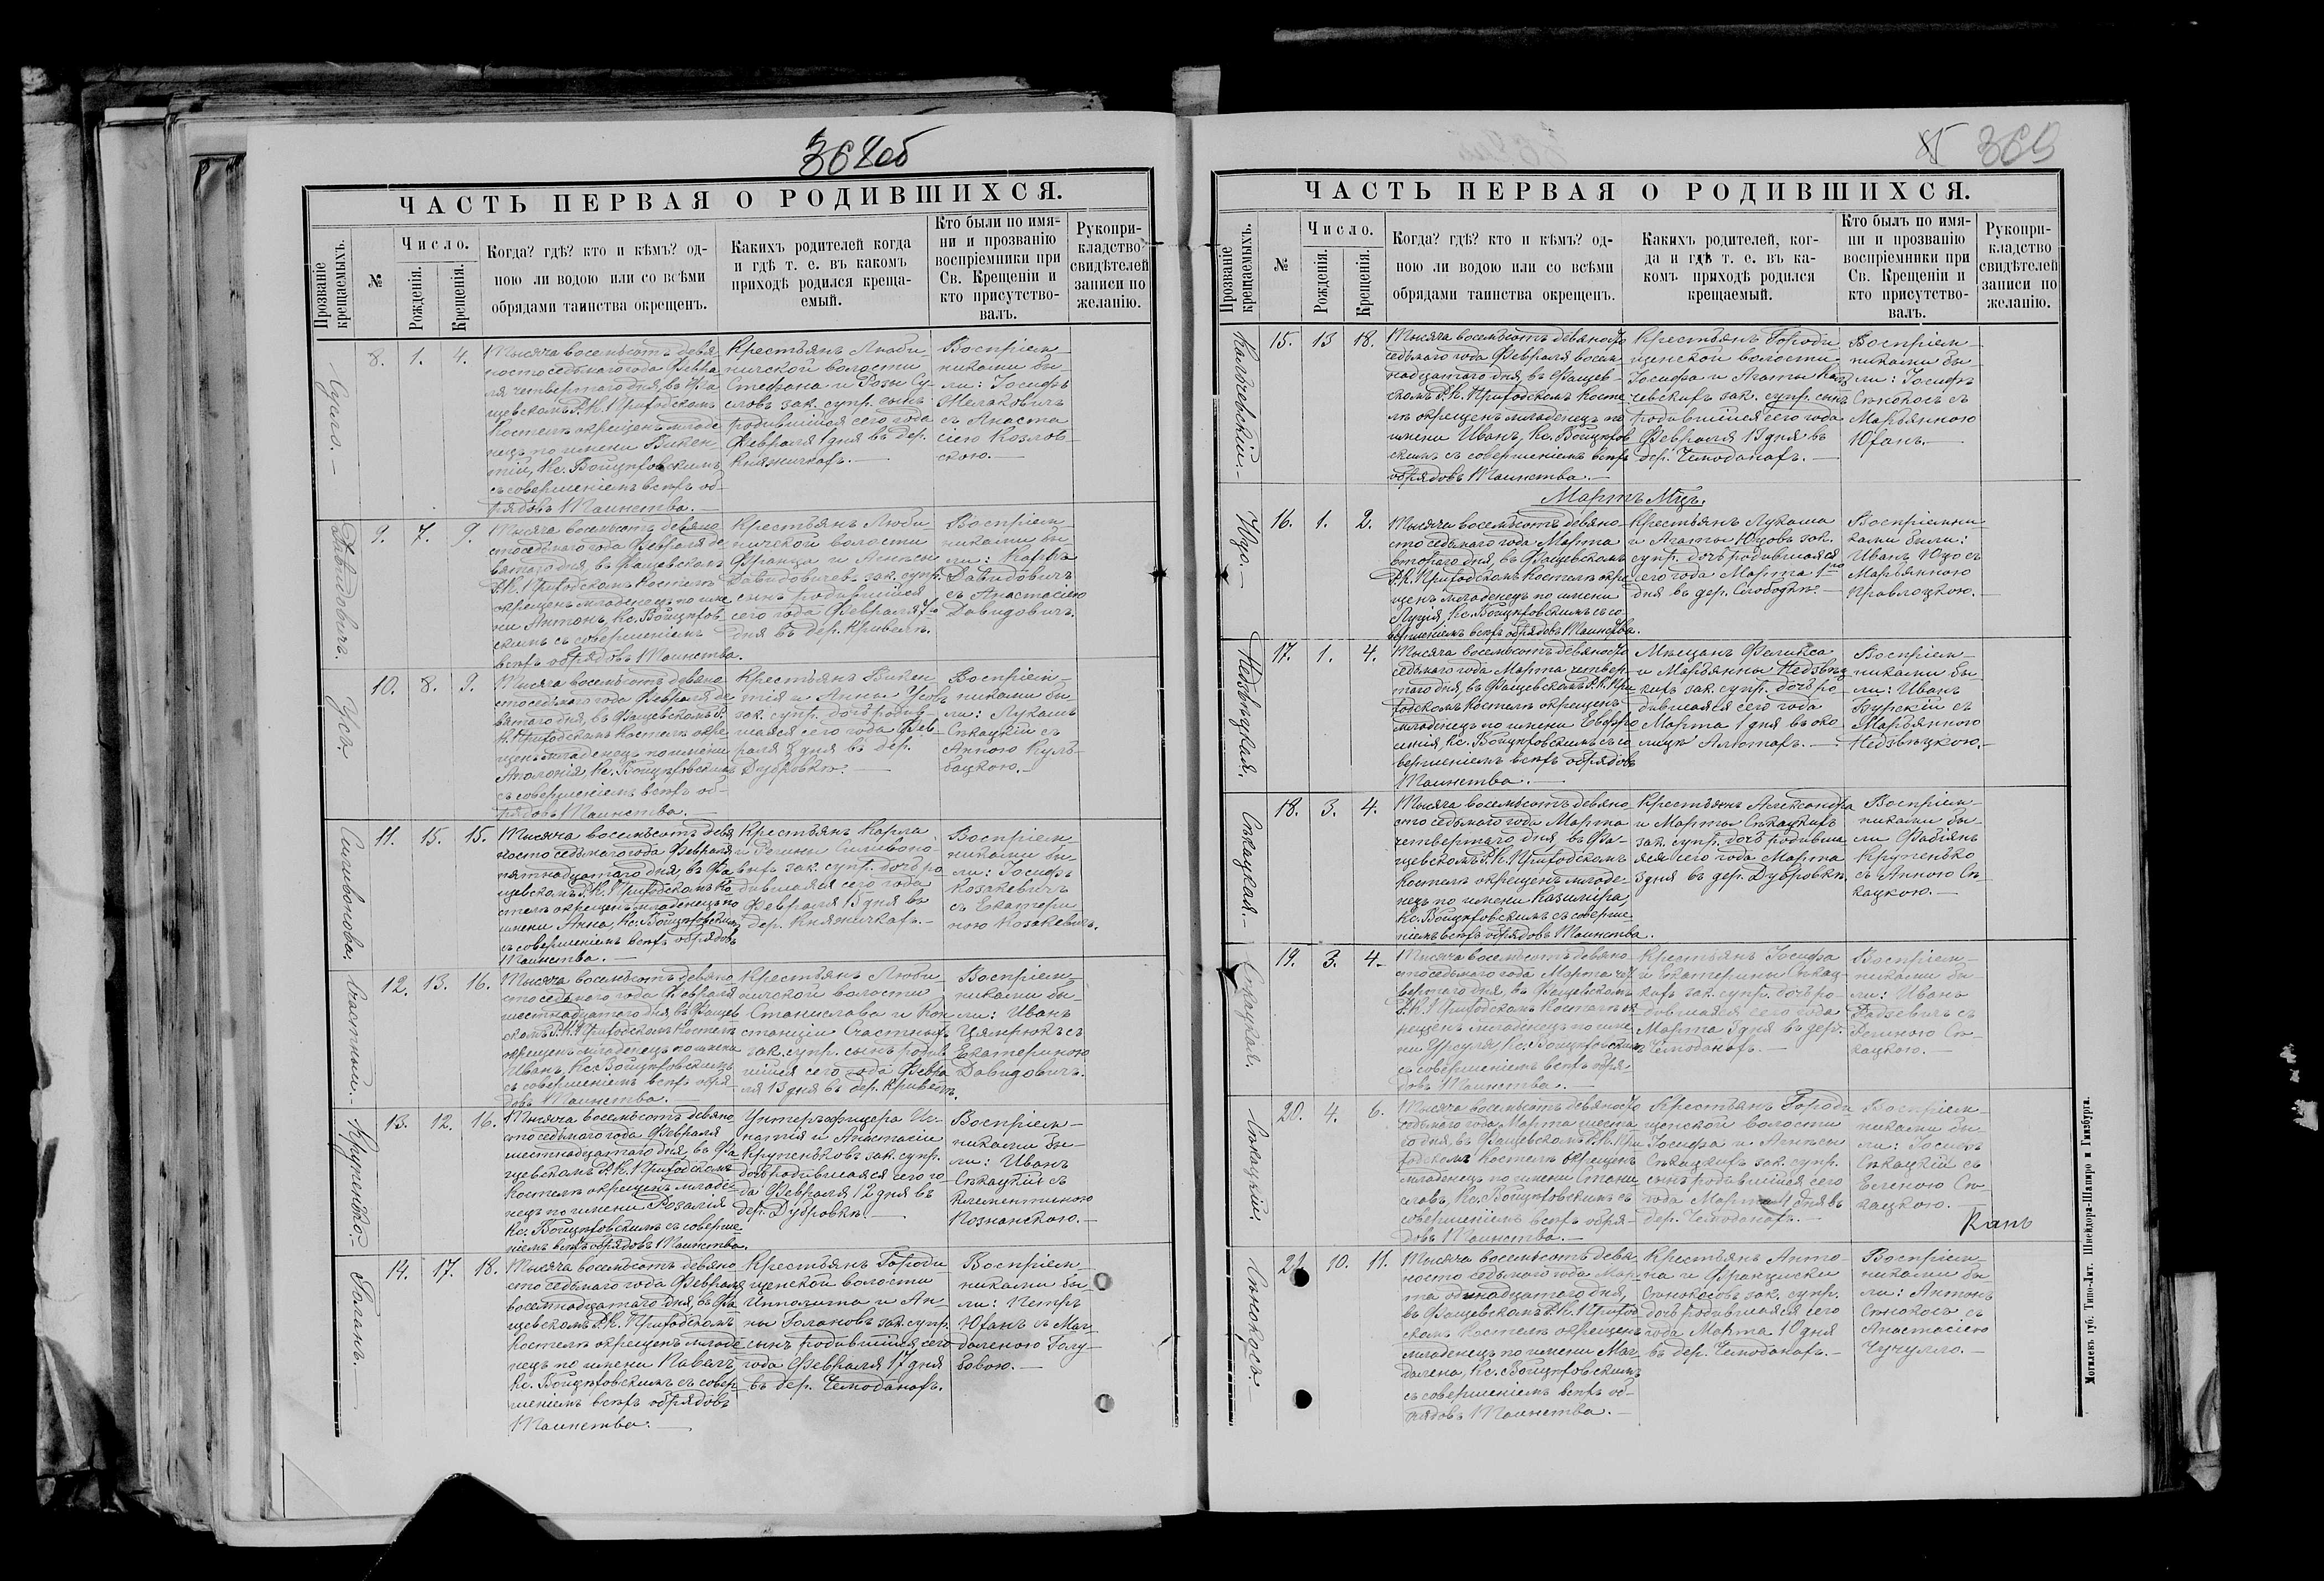 368об
ЧАСТЬ ПЕРВАЯ О РОДИВШИХСЯ.
Прозваніе крещаемыхъ.
№
Число.
Рожденія.
Крещенія.
Когда? гдѣ? кто и кѣмъ? од-
ною ли водою или со всѣми
обрядами таинства окрещенъ.
Какихъ родителей когда
и гдѣ т. е. въ какомъ
приходѣ родился креща-
емый.
Кто были по имя-
ни и прозванію
воспріемники при
Св. Крещеніи и
кто присутство-
валъ.
Рукопри-
кладство
свидѣтелей
записи по
желанію.
8. 1. 4.
Тысяча восемьсотъ девя-
носто седьмаго года Февра-
ля четвертаго дня, въ Фа-
щевскомъ Р.К. Приходскомъ
Костелѣ окрещенъ младе-
нецъ по имени Викен-
тій, Кс. Войцѣховскимъ
съ совершеніемъ всѣхъ об-
рядовъ Таинства.
Крестьянъ Люби-
ничской волости
Стефана и Розы Су-
словъ зак. супр. сынъ
родившійся сего года
Февраля 1 дня въ дер.
Княжичкахъ.
Воспріем-
никами бы-
ли: Іосифъ
съ Анаста-
сіею Козлов-
скою.
Давидовичъ.
9. 7. 9.
Тысяча восемьсотъ девяно-
сто седьмаго года Февраля де-
вятаго дня, въ Фащевскомъ
Р.К. Приходскомъ Костелѣ
окрещенъ младенецъ по име-
ни Антонъ, Кс. Войцѣхов-
скимъ съ совершеніемъ
всѣхъ обрядовъ Таинства.
Крестьянъ Люби-
ничской волости
Франца и Агнѣсы
Давидовичевъ зак. супр.
сынъ родившійся
сего года Февраля 7го
дня въ дер. Кривелѣ.
Воспріем-
никами бы-
ли: Карлъ
Давидовичъ
съ Анастасіею
Давидовичъ.
Уса
10. 8. 9.
Тысяча восемьсотъ девяно-
сто седьмаго года Февраля де-
вятаго дня, въ Фащевскомъ Р.
К. Приходскомъ Костелѣ окре-
щенъ младенецъ по имени
Аполонія, Кс. Войцѣховскимъ
съ совершеніемъ всѣхъ об-
рядовъ Таинства.
Крестьянъ Викен-
тія и Анны Усовъ
зак. супр. дочь родив-
шаяся сего года Фев-
раля 8 дня въ дер.
Дубровкѣ.
Воспріем-
никами бы-
ли: Лукашъ
Сѣкацкій съ
Анною Куль-
бацкою.
Силивонова.
11. 15. 15.
Тысяча восемьсотъ девя-
носто седьмаго года Февраля
пятнадцатаго дня, въ Фа-
щевскомъ Р.К. Приходскомъ Ко-
стелѣ окрещенъ младенецъ по
имени Анна, Кс. Войцѣховскимъ
съ совершеніемъ всѣхъ обрядовъ
Таинства.
Крестьянъ Карла
и Регины Силивоно-
выхъ зак. супр. дочь ро-
дившаяся сего года
Февраля 15 дня въ
дер. Княжичкахъ.
Воспріем-
никами бы-
ли: Іосифъ
Козакевичъ
съ Екатери-
ною Козакевичъ.
Счастный.
12. 13. 16.
Тысяча восемьсотъ девяно-
сто седьмаго года Февраля
шестнадцатаго дня, въ Фащев-
скомъ Р.К. Приходскомъ Костелѣ
окрещенъ младенецъ по имени
Иванъ, Кс. Войцѣховскимъ
съ совершеніемъ всѣхъ обря-
довъ Таинства.
Крестьянъ Люби-
ничской волости
Станислава и Кон-
станціи Счастныхъ
зак. супр. сынъ родив-
шійся сего года Февра-
ля 13 дня въ дер. Кривелѣ.
Воспріем-
никами бы-
ли: Иванъ
съ
Екатериною
Давидовичъ.
Крупенько.
13. 12. 16.
Тысяча восемьсотъ девяно-
сто седьмаго года Февраля
шестнадцатаго дня, въ Фа-
щевскомъ Р.К. Приходскомъ
Костелѣ окрещенъ младе-
нецъ по имени Розалія
Кс. Войцѣховскимъ съ соверше-
ніемъ всѣхъ обрядовъ Таинства.
Унтеръ-офицера Иг-
натія и Анастасіи
Крупеньковъ зак. супр.
дочь родившаяся сего го-
да Февраля 12 дня въ
дер. Дубровкѣ.
Воспріем-
никами бы-
ли: Иванъ
Сѣкацкій съ
Клементиною
Познанскою.
Голанъ.
14. 17. 18.
Тысяча восемьсотъ девяно-
сто седьмаго года Февраля
восемнадцатаго дня, въ Фа-
щевскомъ Р.К. Приходскомъ
Костелѣ окрещенъ младе-
нецъ по имени Павелъ,
Кс. Войцѣховскимъ съ совер-
шеніемъ всѣхъ обрядовъ
Таинства.
Крестьянъ Городи-
щенской волости
Ипполита и Ан-
ны Голановъ зак. супр.
сынъ родившійся сего
года Февраля 17 дня
въ дер. Чемоданахъ.
Воспріем-
никами бы-
ли: Петръ
Юханъ съ Маг-
даленою Голу-
бовою.
369
ЧАСТЬ ПЕРВАЯ О РОДИВШИХСЯ.
Прозваніе крещаемыхъ.
№
Число.
Рожденія.
Крещенія.
Когда? гдѣ? кто и кѣмъ? од-
ною ли водою или со всѣми
обрядами таинства окрещенъ.
Какихъ родителей, ког-
да и гдѣ т. е. въ ка-
комъ приходѣ родился
крещаемый.
Кто былъ по имя-
ни и прозванію
воспріемники при
Св. Крещеніи и
кто присутство-
валъ.
Рукопри-
кладство
свидѣтелей
записи по
желанію.
15. 13 18.
Тысяча восемьсотъ девяносто
седьмаго года Февраля восем-
надцатаго дня, въ Фащев-
скомъ Р.К. Приходскомъ Косте-
лѣ окрещенъ младенецъ по
имени Иванъ, Кс. Войцѣхов-
скимъ съ совершеніемъ всѣхъ
обрядовъ Таинства.
Крестьянъ Городи-
щенской волости
Іосифа и Агаты
зак. супр. сынъ
родившійся сего года
Февраля 13 дня въ
дер. Чемоданахъ.
Воспріем-
никами бы-
ли: Іосифъ
Сѣнокосъ съ
Марьянною
Юханъ.
Мартъ Мцъ.
Юцо.
16. 1. 2.
Тысяча восемьсотъ девяно-
сто седьмаго года Марта
втораго дня, въ Фащевскомъ
Р.К. Приходскомъ Костелѣ окре-
щенъ младенецъ по имени
Луція, Кс. Войцѣховскимъ съ со-
вершеніемъ всѣхъ обрядовъ Таинства.
Крестьянъ Лукаша
и Агаты Юцовъ зак.
супр. дочь родившаяся
сего года Марта 1го
дня въ дер. Слободкѣ.
Воспріемни-
ками были:
Иванъ Юцо съ
Марьянною
Недзвѣцкая.
17. 1. 4.
Тысяча восемьсотъ девяносто
седьмаго года Марта четвер-
таго дня, въ Фащевскомъ Р.К. При-
ходскомъ Костелѣ окрещенъ
младенецъ по имени Евфро-
синія, Кс. Войцѣховскимъ съ со-
вершеніемъ всѣхъ обрядовъ
Таинства.
Мѣщанъ Феликса
и Марьянны Недзвѣц-
кихъ зак. супр. дочь ро-
дившаяся сего года
Марта 1 дня въ око-
лицѣ
Воспріем-
никами бы-
ли: Иванъ
Бурскій съ
Марьянною
Недзвѣцкою.
Сѣкацкая.
18. 3. 4.
Тысяча восемьсотъ девяно-
сто седьмаго года Марта
четвертаго дня въ Фа-
щевскомъ Р.К. Приходскомъ
Костелѣ окрещенъ младе-
нецъ по имени Казиміра,
Кс. Войцѣховскимъ съ соверше-
ніемъ всѣхъ обрядовъ Таинства.
Крестьянъ Александра
и Марты Сѣкацкихъ
зак. супр. дочь родивша-
яся сего года Марта
3 дня въ дер. Дубровкѣ.
Воспріем-
никами бы-
ли Фабіянъ
Крупенько
съ Анною Сѣ-
кацкою.
Сѣкацкая.
19. 3. 4.
Тысяча восемьсотъ девяно-
сто седьмаго года Марта чет-
вертаго дня, въ Фащевскомъ
Р.К. Приходскомъ Костелѣ ок-
рещенъ младенецъ по име-
ни Урсуля, Кс. Войцѣховскимъ
съ совершеніемъ всѣхъ обря-
довъ Таинства.
Крестьянъ Іосифа
и Екатерины Сѣкац-
кихъ зак. супр. дочь ро-
дившаяся сего года
Марта 3 дня въ дер.
Чемоданахъ.
Воспріем-
никами бы-
ли: Иванъ
съ
Сѣ-
кацкою.
Сѣкацкій
20. 4. 6.
Тысяча восемьсотъ девяносто
седьмаго года Марта шеста-
го дня, въ Фащевскомъ Р.К. При-
ходскомъ Костелѣ окрещенъ
младенецъ по имени Стани-
славъ, Кс. Войцѣховскимъ съ
совершеніемъ всѣхъ обря-
довъ Таинства.
Крестьянъ Городи-
щенской волости
Іосифа и Агнѣсы
Сѣкацкихъ зак. супр.
сынъ родившійся сего
года Марта 4 дня въ
дер. Чемоданахъ.
Воспріем-
никами бы-
ли: Іосифъ
Сѣкацкій съ
Еленою Сѣ-
кацкою.
Сѣнокосъ
21 10. 11.
Тысяча восемьсотъ девя-
носто седьмаго года Мар-
та одинадцатаго дня,
въ Фащевскомъ Р.К. Приход-
скомъ Костелѣ окрещенъ
младенецъ по имени Маг-
далена, Кс. Войцѣховскимъ
съ совершеніемъ всѣхъ об-
рядовъ Таинства.
Крестьянъ Анто-
на и Франциски
Сѣнокосовъ зак. супр.
дочь родившаяся сего
года Марта 10 дня
въ дер. Чемоданахъ.
Воспріем-
никами бы-
ли: Антонъ
Сѣнокосъ съ
Анастасіею
Чучулло.
Могилевъ губ. Типо-Лит. Шнейдора-Шапиро и Гинзбурга.